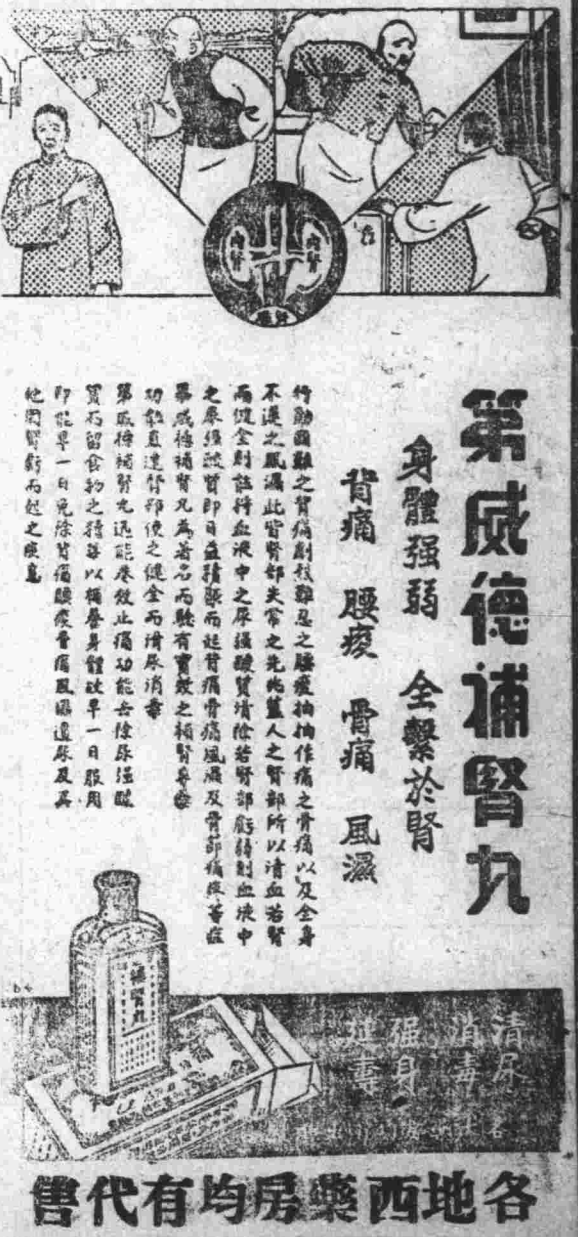 內腎
內腎
第威德補腎丸
身體强弱　全繫於腎
背痛　腰痠　骨痛　風濕
行動困難之背痛劇烈難忍之腰痠抽抽作痛之骨痛以及全身
不遂之風濕此皆腎部失常之先兆蓋人之腎部所以清血若腎
而健全則能將血液中之尿强酸質清除若腎部虧弱則血液中
之尿强酸質卽日益積聚而起背痛骨痛風濕及骨節痛疾等症
第威德補腎丸為著名而驗有實效之補腎
功能直達腎部使之健全而清尿消毒
第威德補腎丸迅能奏效止痛功能去除尿强酸
質而留食物之精華以補養身體故早一日服用
卽能早一日免除背痛腰痠骨痛風濕遺尿及其
他因腎虧而起之疾患
補腎丸
清尿
消毒
强身
延壽
各地西藥房均有代售